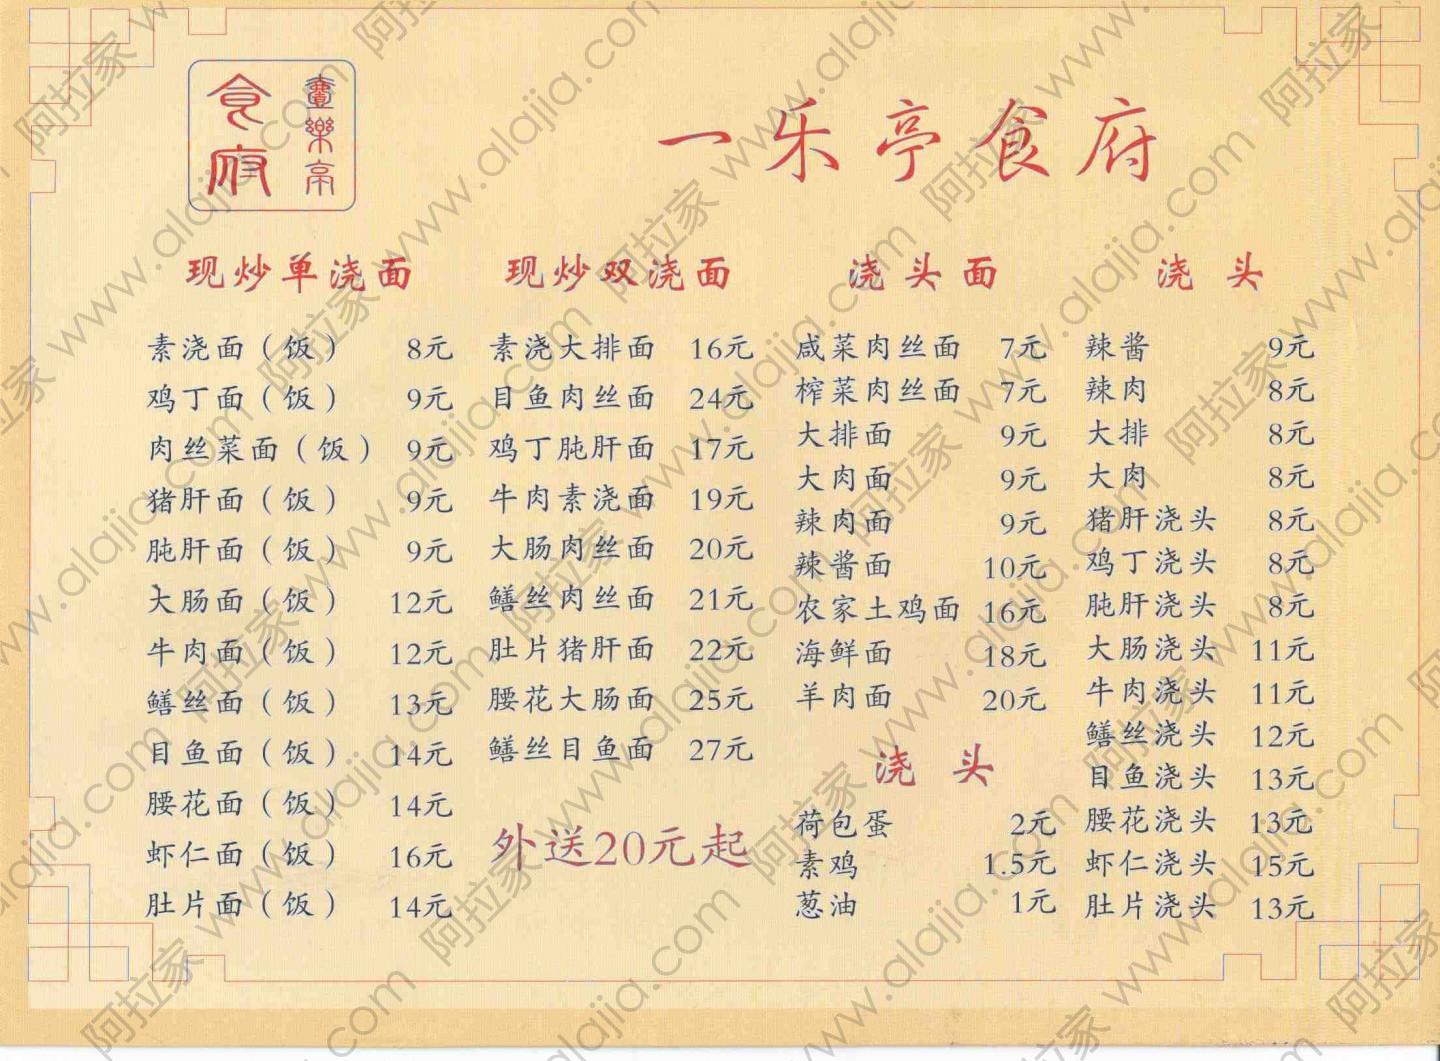 壹樂亭
食府
一乐亭食府
现炒单浇面
素浇面（饭） 8元
鸡丁面（饭） 9元
肉丝菜面（饭） 9元
猪肝面（饭） 9元
肫肝面（饭） 9元
大肠面（饭） 12元
牛肉面（饭） 12元
鳝丝面（饭） 13元
目鱼面（饭） 14元
腰花面（饭） 14元
虾仁面（饭） 16元
肚片面（饭） 14元
现炒双浇面
素浇大排面 16元
目鱼肉丝面 24元
鸡丁肫肝面 17元
牛肉素浇面 19元
大肠肉丝面 20元
鳝丝肉丝面 21元
肚片猪肝面 22元
腰花大肠面 25元
鳝丝目鱼面 27元
外送20元起
浇头面
咸菜肉丝面 7元
榨菜肉丝面 7元
大排面 9元
大肉面 9元
辣肉面 9元
辣酱面 10元
农家土鸡面 16元
海鲜面 18元
羊肉面 20元
浇头
荷包蛋 2元
素鸡 1.5元
葱油 1元
浇头
辣酱 9元
辣肉 8元
大排 8元
大肉 8元
猪肝浇头 8元
鸡丁浇头 8元
肫肝浇头 8元
大肠浇头 11元
牛肉浇头 11元
鳝丝浇头 12元
目鱼浇头 13元
腰花浇头 13元
虾仁浇头 15元
肚片浇头 13元
阿拉家 www.alajia.com